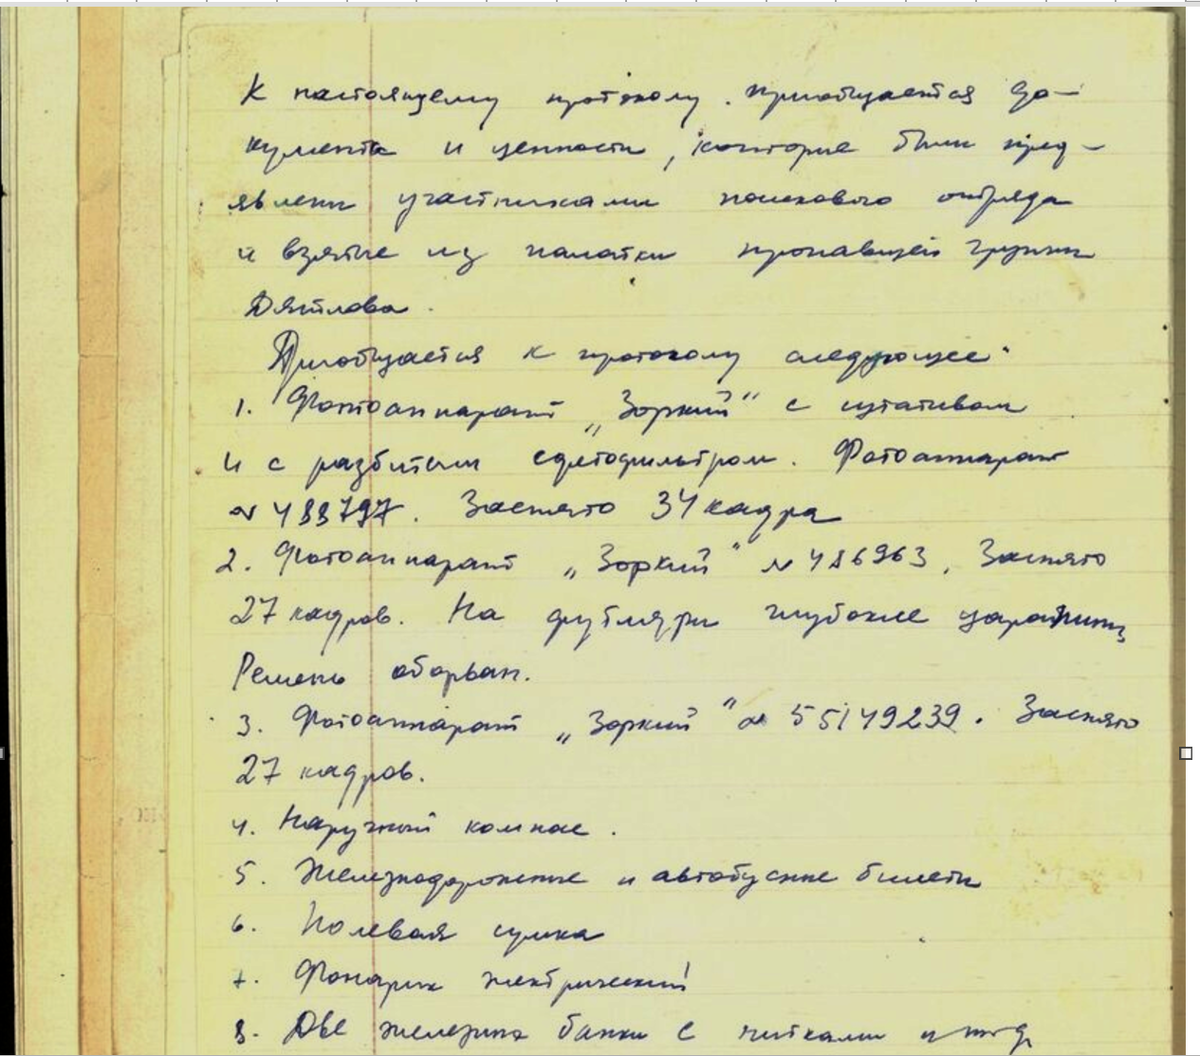 К настоящему протоколу приобщается до-
кументы и ценности, которые были пред-
явлены участниками поискового отряда
и взятые из палатки пропавшей группы
Дятлова.
Приобщается к протоколу следующее:
1. Фотоаппарат „Зоркий" с штативом
и с разбитым светофильтром. Фотоаппарат
№ 488797. Заснято 34 кадра
2. Фотоаппарат „Зоркий" № 486963. Заснято
27 кадров. На футляре глубокие царапины,
Ремень оборван.
3. Фотоаппарат „Зоркий" № 55149239. Заснято
27 кадров.
4. Наручный компас.
5. Железнодорожные и автобусные билеты
6. Полевая сумка
7. Фонарик электрический
8. Две железных банки с нитками и т д